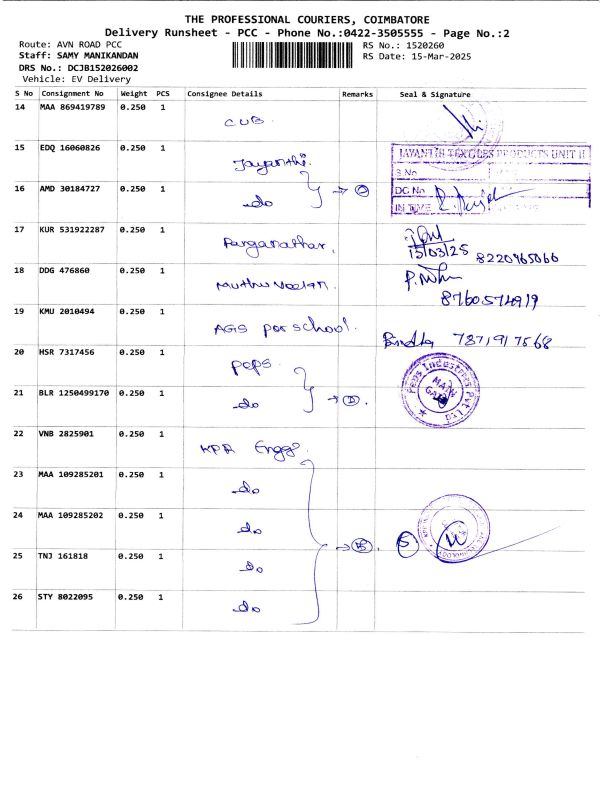 THE PROFESSIONAL COURIERS, COIMBATORE
Delivery Runsheet - PCC - Phone No.:0422-3505555 - Page No.:2
Route: AVN ROAD PCC
Staff: SAMY MANIKANDAN
DRS No.: DCJB152026002
Vehicle: EV Delivery
RS No.: 1520260
RS Date: 15-Mar-2025
S No Consignment No Weight PCS Consignee Details Remarks Seal & Signature
14 MAA 869419789 0.250 1 CUB.
15 EDQ 16060826 0.250 1 Jayanthi.
JAYANTHI TEXTILES PRODUCTS UNIT II
S.No
16 AMD 30184727 0.250 1 do
DC No
IN TIME
17 KUR 531922287 0.250 1
15/03/25 8220965066
18 DDG 476860 0.250 1
8760574919
19 KMU 2010494 0.250 1 AGS school.
7871917568
20 HSR 7317456 0.250 1 peps.
Peps Industries Pvt Ltd
MAIN GATE
21 BLR 1250499170 0.250 1 do
22 VNB 2825901 0.250 1 KPR Engg.
23 MAA 109285201 0.250 1 do
24 MAA 109285202 0.250 1 do
5
25 TNJ 161818 0.250 1 do
26 STY 8022095 0.250 1 do